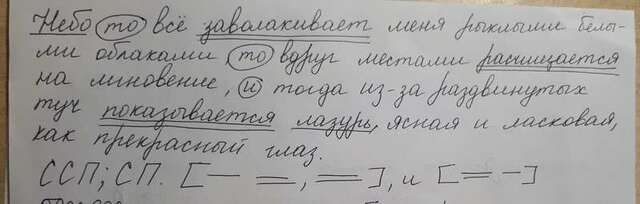 Небо то всё заволакивает меня рыхлыми белы-
ми облаками, то вдруг местами расчищается
на мгновение, и тогда из-за раздвинутых
туч показывается лазурь, ясная и ласковая,
как прекрасный глаз.
ССП; СП. [— =, =], и [= —]